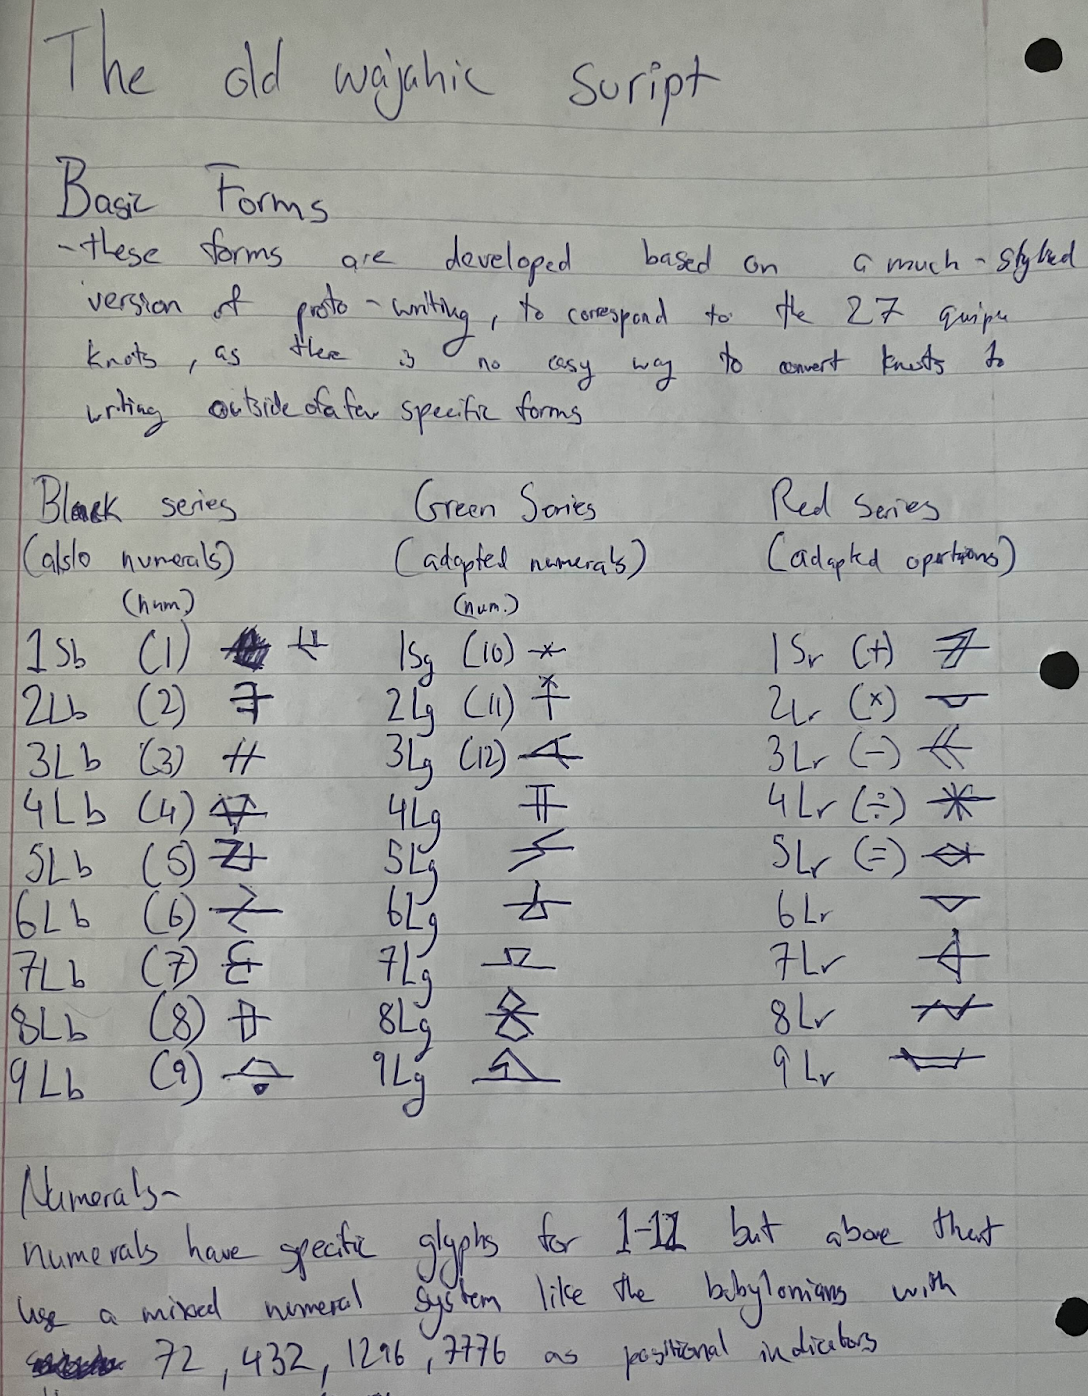 The old wajahic script
Basic Forms
-these forms are developed based on a much-styled
version of proto-writing, to correspond to the 27 quipu
knots, as there is no easy way to convert knots to
writing outside of a few specific forms
Black series Green Series Red Series
(also numerals) (adapted numerals) (adapted opertions)
(num.) (num.)
1Sb (1) 1Sg (10) 1Sr (+)
2Lb (2) 2Lg (11) 2Lr (x)
3Lb (3) 3Lg (12) 3Lr (-)
4Lb (4) 4Lg 4Lr (÷)
5Lb (5) 5Lg 5Lr (=)
6Lb (6) 6Lg 6Lr
7Lb (7) 7Lg 7Lr
8Lb (8) 8Lg 8Lr
9Lb (9) 9Lg 9Lr
Numerals-
numerals have specific glyphs for but above that
use a mixed numeral system like the babylonians with
72, 432, 1296, 7776 as positional indicators